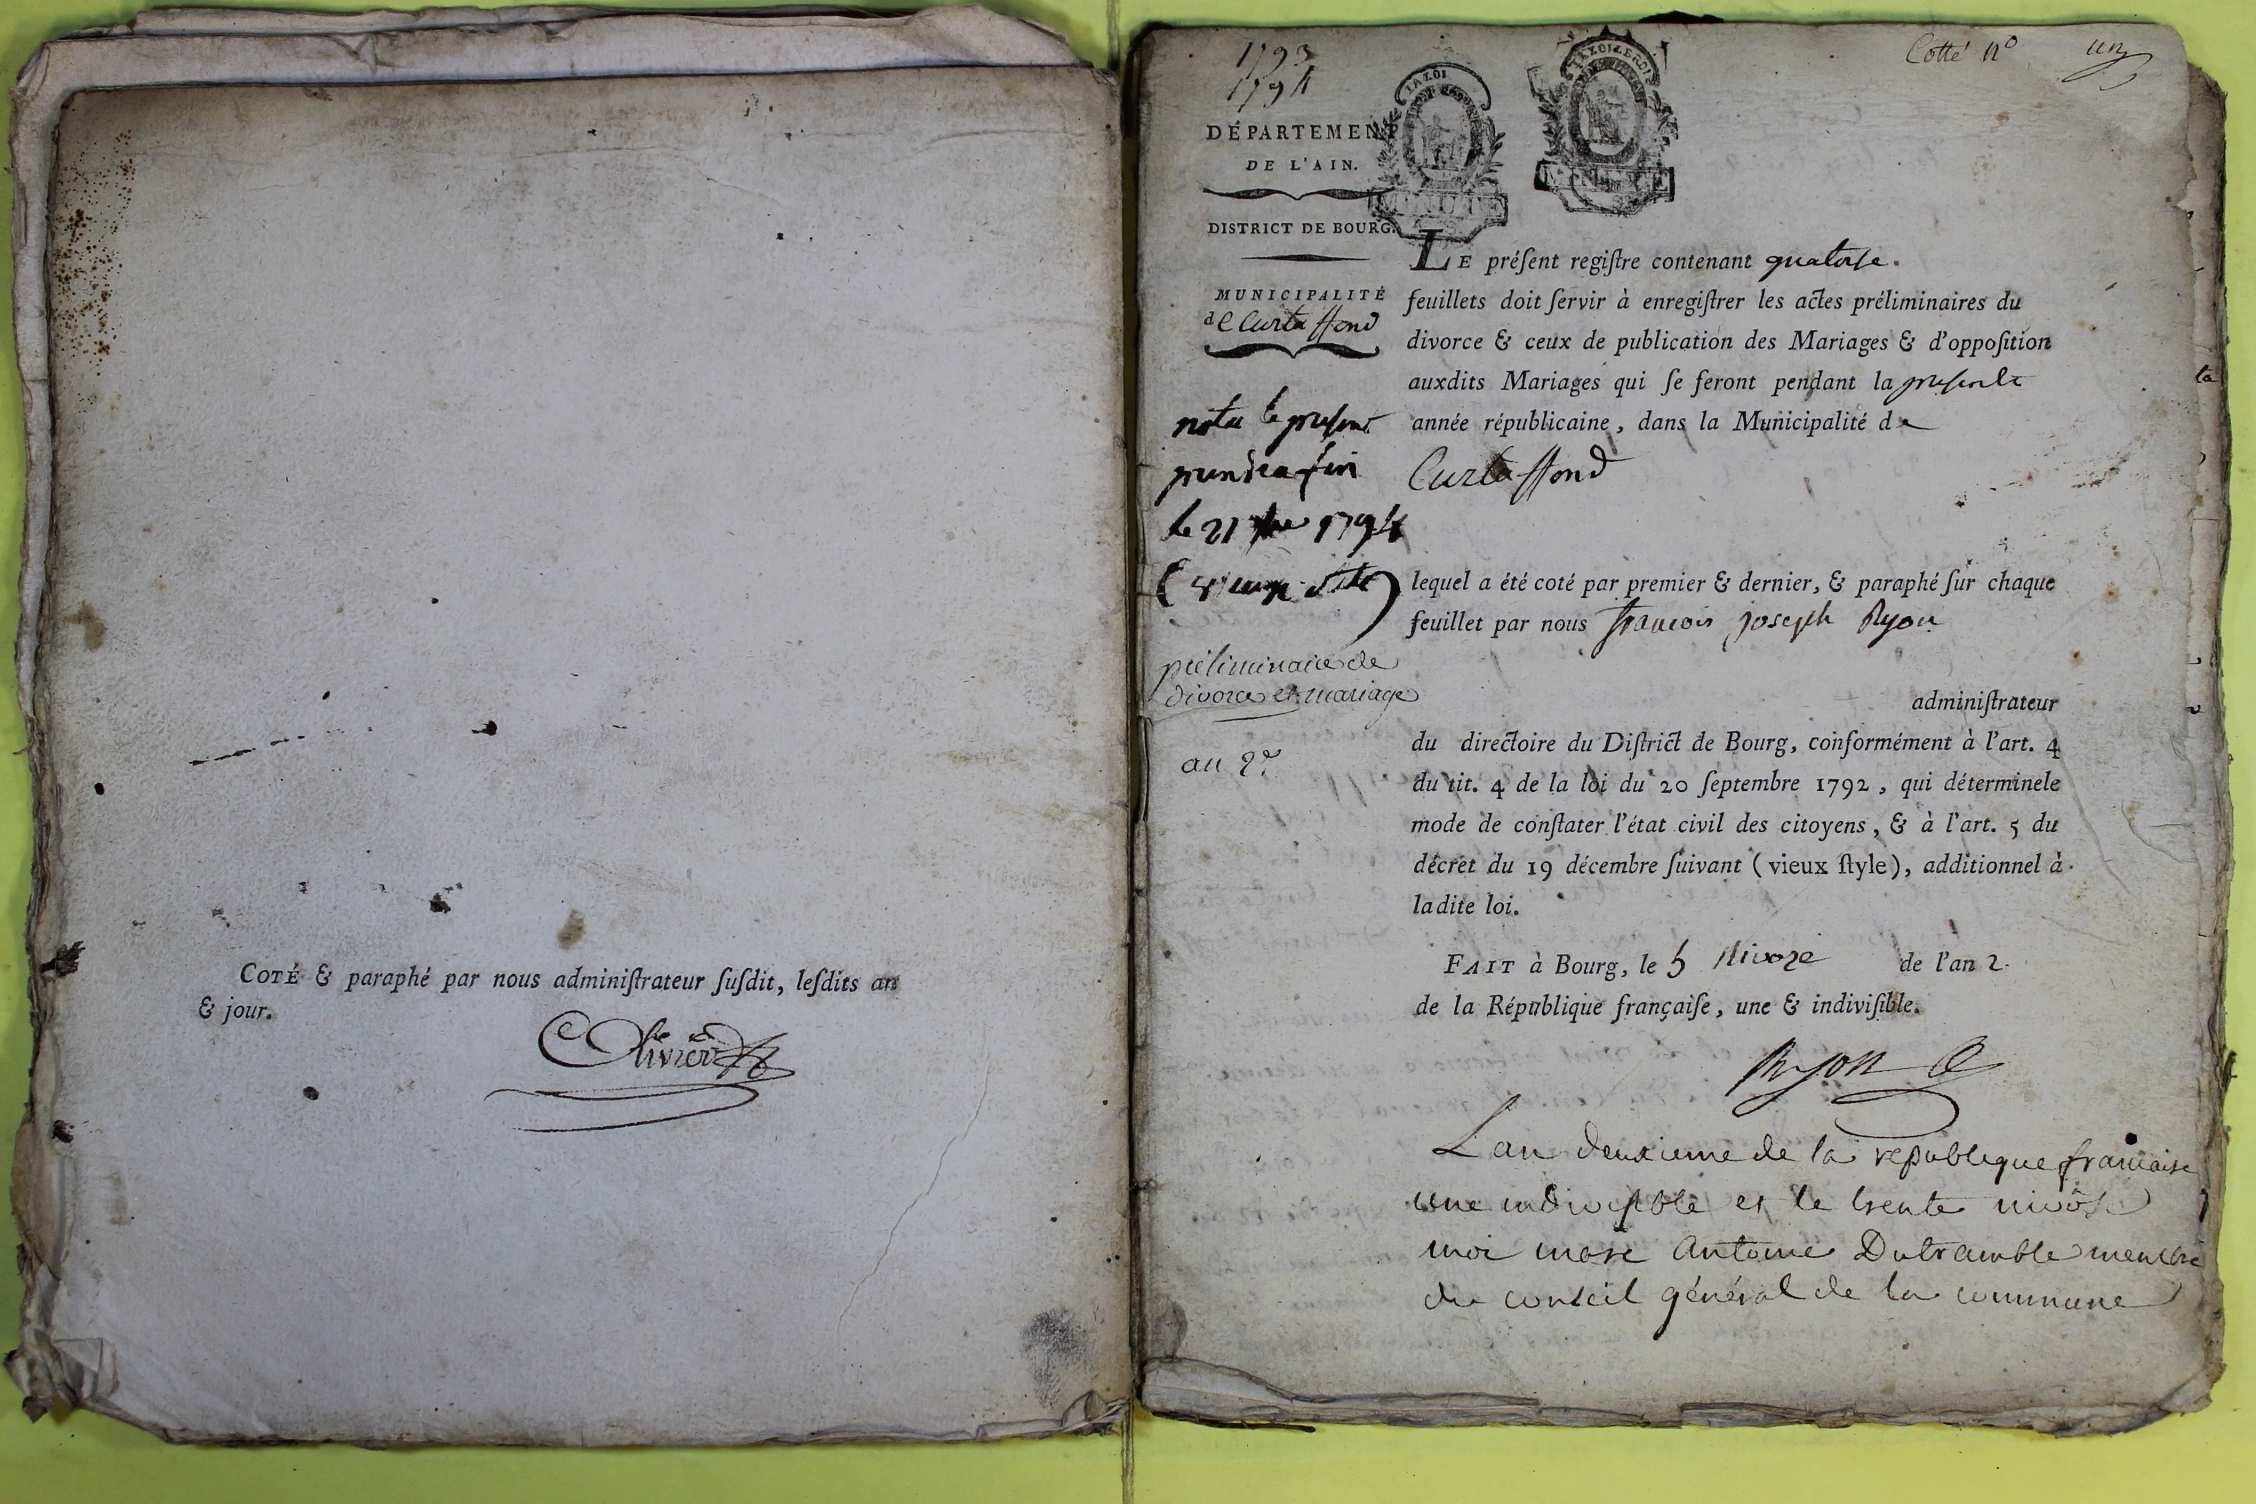 COTÉ & paraphé par nous adminiſtrateur ſuſdit, leſdits an
& jour.
Olivier
Cotté n° un
1793
1794
DÉPARTEMENT
DE L'AIN.
DISTRICT DE BOURG.
MUNICIPALITÉ
de Curtaffond
nota le present
prendra fin
le 21 1794
(vieux stile)
préliminaire de
divorce et mariage
an 2e
LE préſent regiſtre contenant quatorse.
feuillets doit ſervir à enregiſtrer les actes préliminaires du
divorce & ceux de publication des Mariages & d'oppoſition
auxdits Mariages qui ſe feront pendant la presente
année républicaine, dans la Municipalité de
Curtaffond
lequel a été coté par premier & dernier, & paraphé ſur chaque
feuillet par nous francois joseph Ryon
adminiſtrateur
du directoire du Diſtrict de Bourg, conformément à l'art. 4
du tit. 4 de la loi du 20 ſeptembre 1792, qui déterminele
mode de conſtater l'état civil des citoyens, & à l'art. 5 du
décret du 19 décembre ſuivant (vieux ſtyle), additionnel à
ladite loi.
FAIT à Bourg, le 5 Nivoze de l'an 2.
de la République françaiſe, une & indiviſible.
Ryon
L'an deuxieme de la republique francaise
une indivisible et le trente nivôse
moi marc Antoine Dutramble membre
du conseil général de la commune